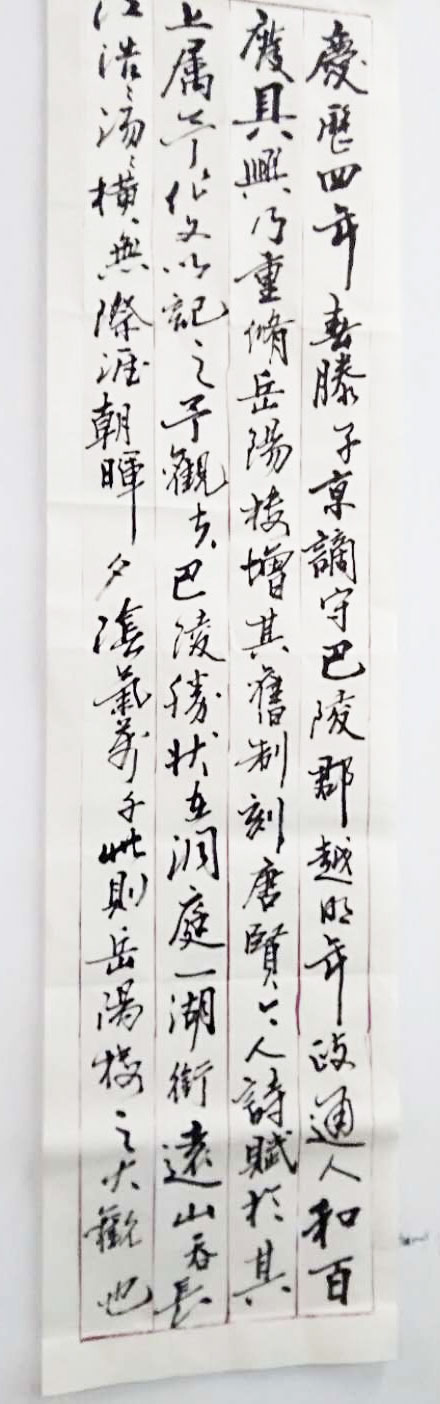 慶歷四年春滕子京謫守巴陵郡越明年政通人和百
廢具興乃重脩岳陽樓增其舊制刻唐賢今人詩賦於其
上属予作文以記之予觀夫巴陵勝狀在洞庭一湖銜遠山吞長
江浩〻湯〻橫無際涯朝暉夕陰氣萬千此則岳陽樓之大觀也